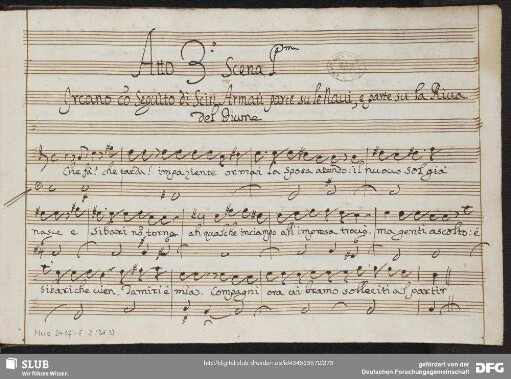 Atto 3.º Scena I.ma
Ircano cō Seguito di Sciti Armati parte su le Navi, e parte su la Riva
del Fiume
Che fà! che tarda! impaziente ormai la sposa atendo: il nuovo sol già
nasce e Sibari nō torna ah qualche inciampo all'impresa trovò. ma genti ascolto: è
Sibari che vien. Tamiri è mia. Compagni ora vi bramo solleciti al partir
Mus. 2477-F-2
SLUB
Wir führen Wissen.
http://digital.slub-dresden.de/id434933872/273
gefördert von der
Deutschen Forschungsgemeinschaft
DFG